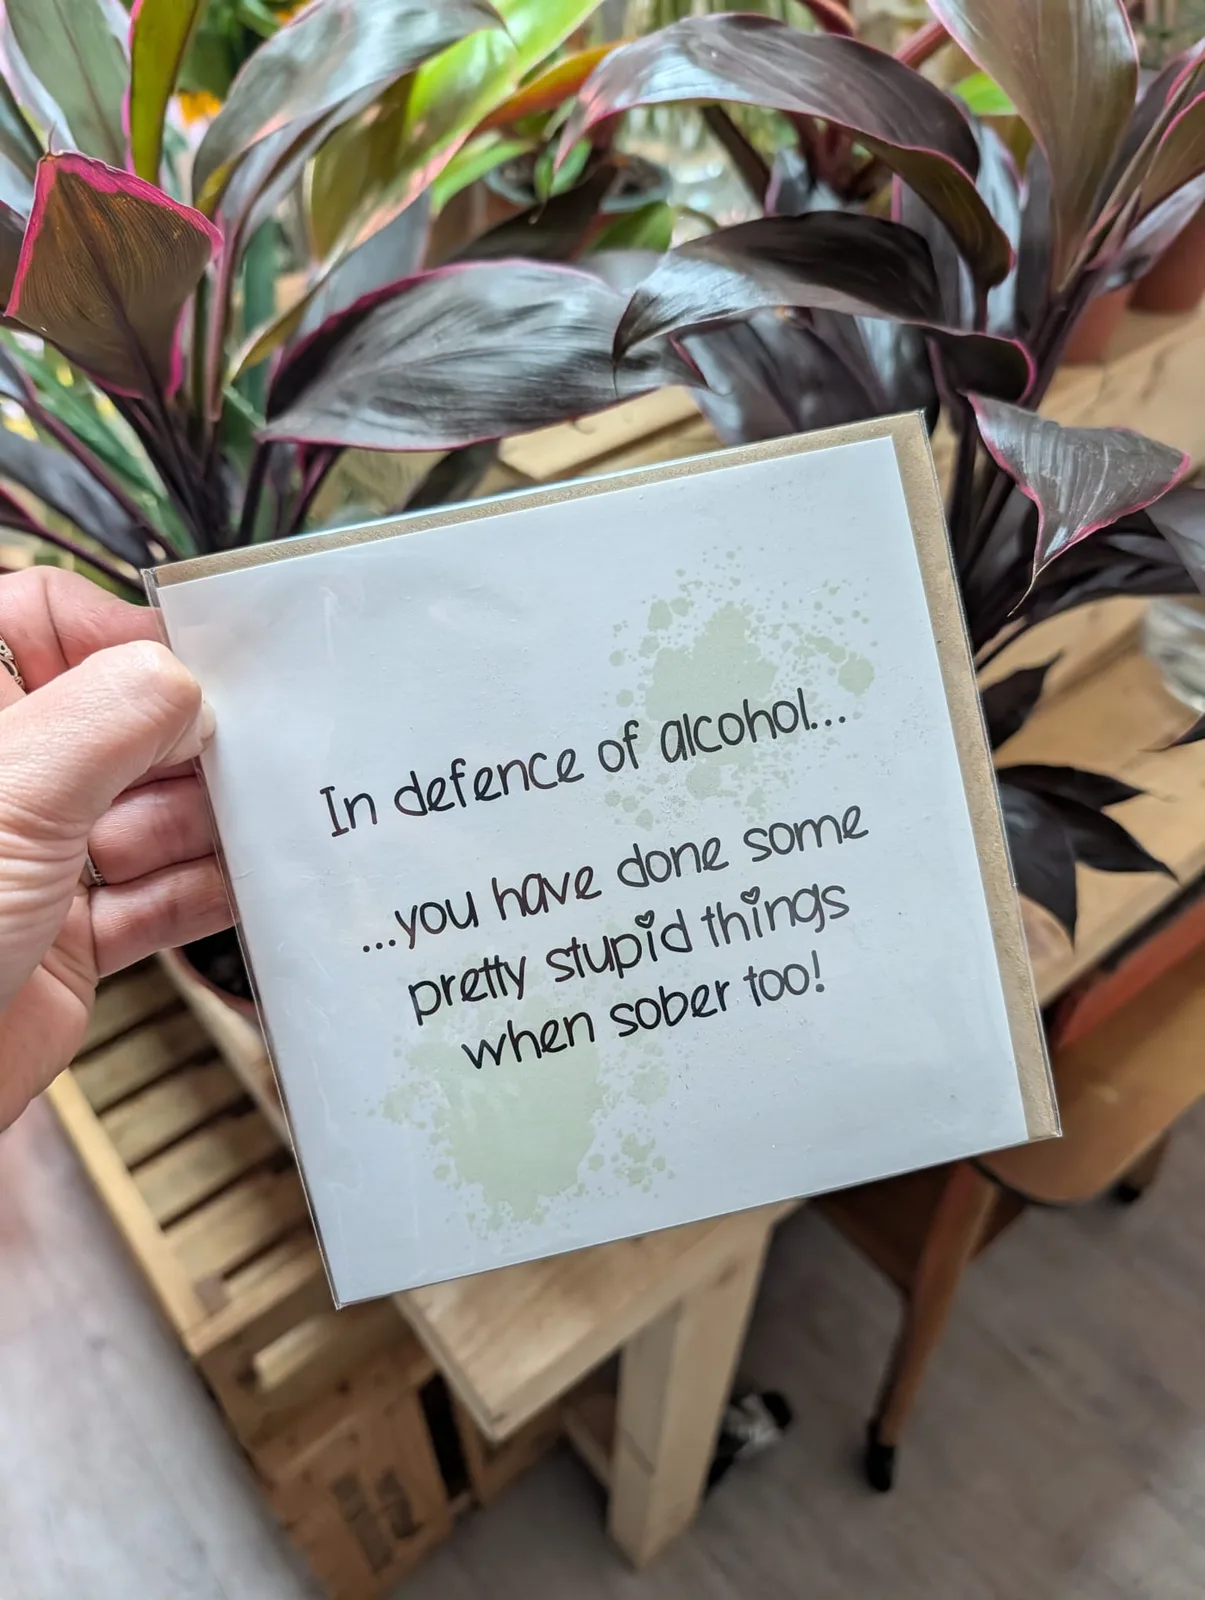 In defence of alcohol...
...you have done some
pretty stupid things
when sober too!